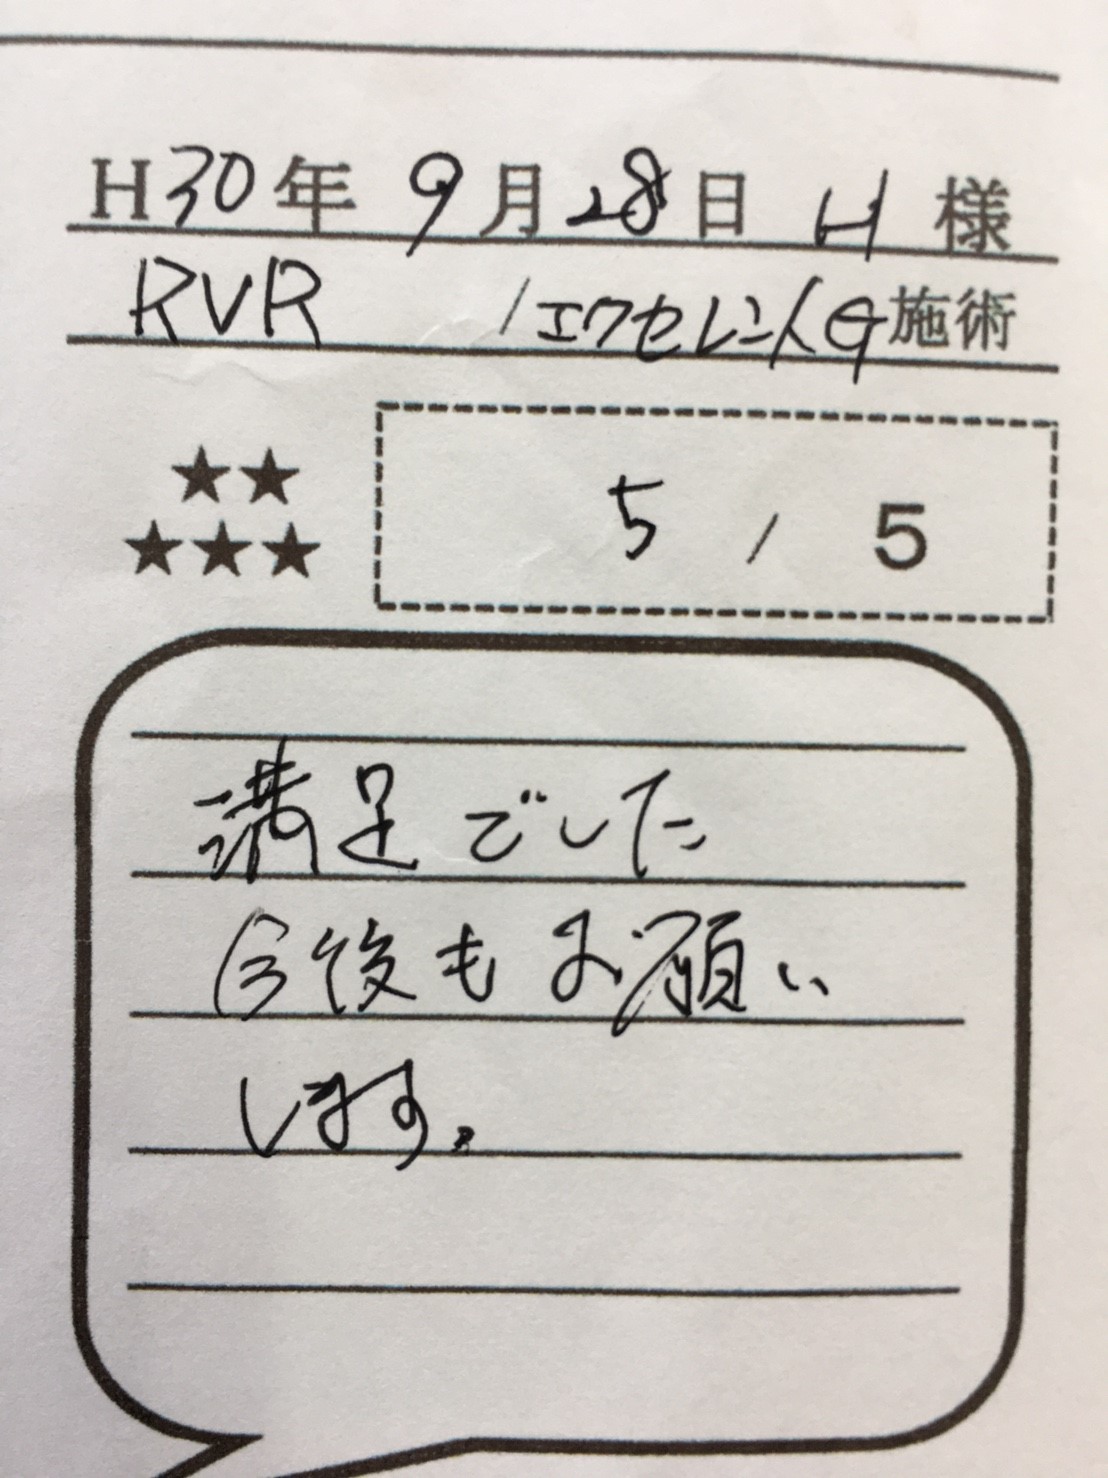 H30年 9月28日 H 様
RVR / エクセレントG 施術
★★
★★★
5 / 5
満足でした
今後もお願い
します。